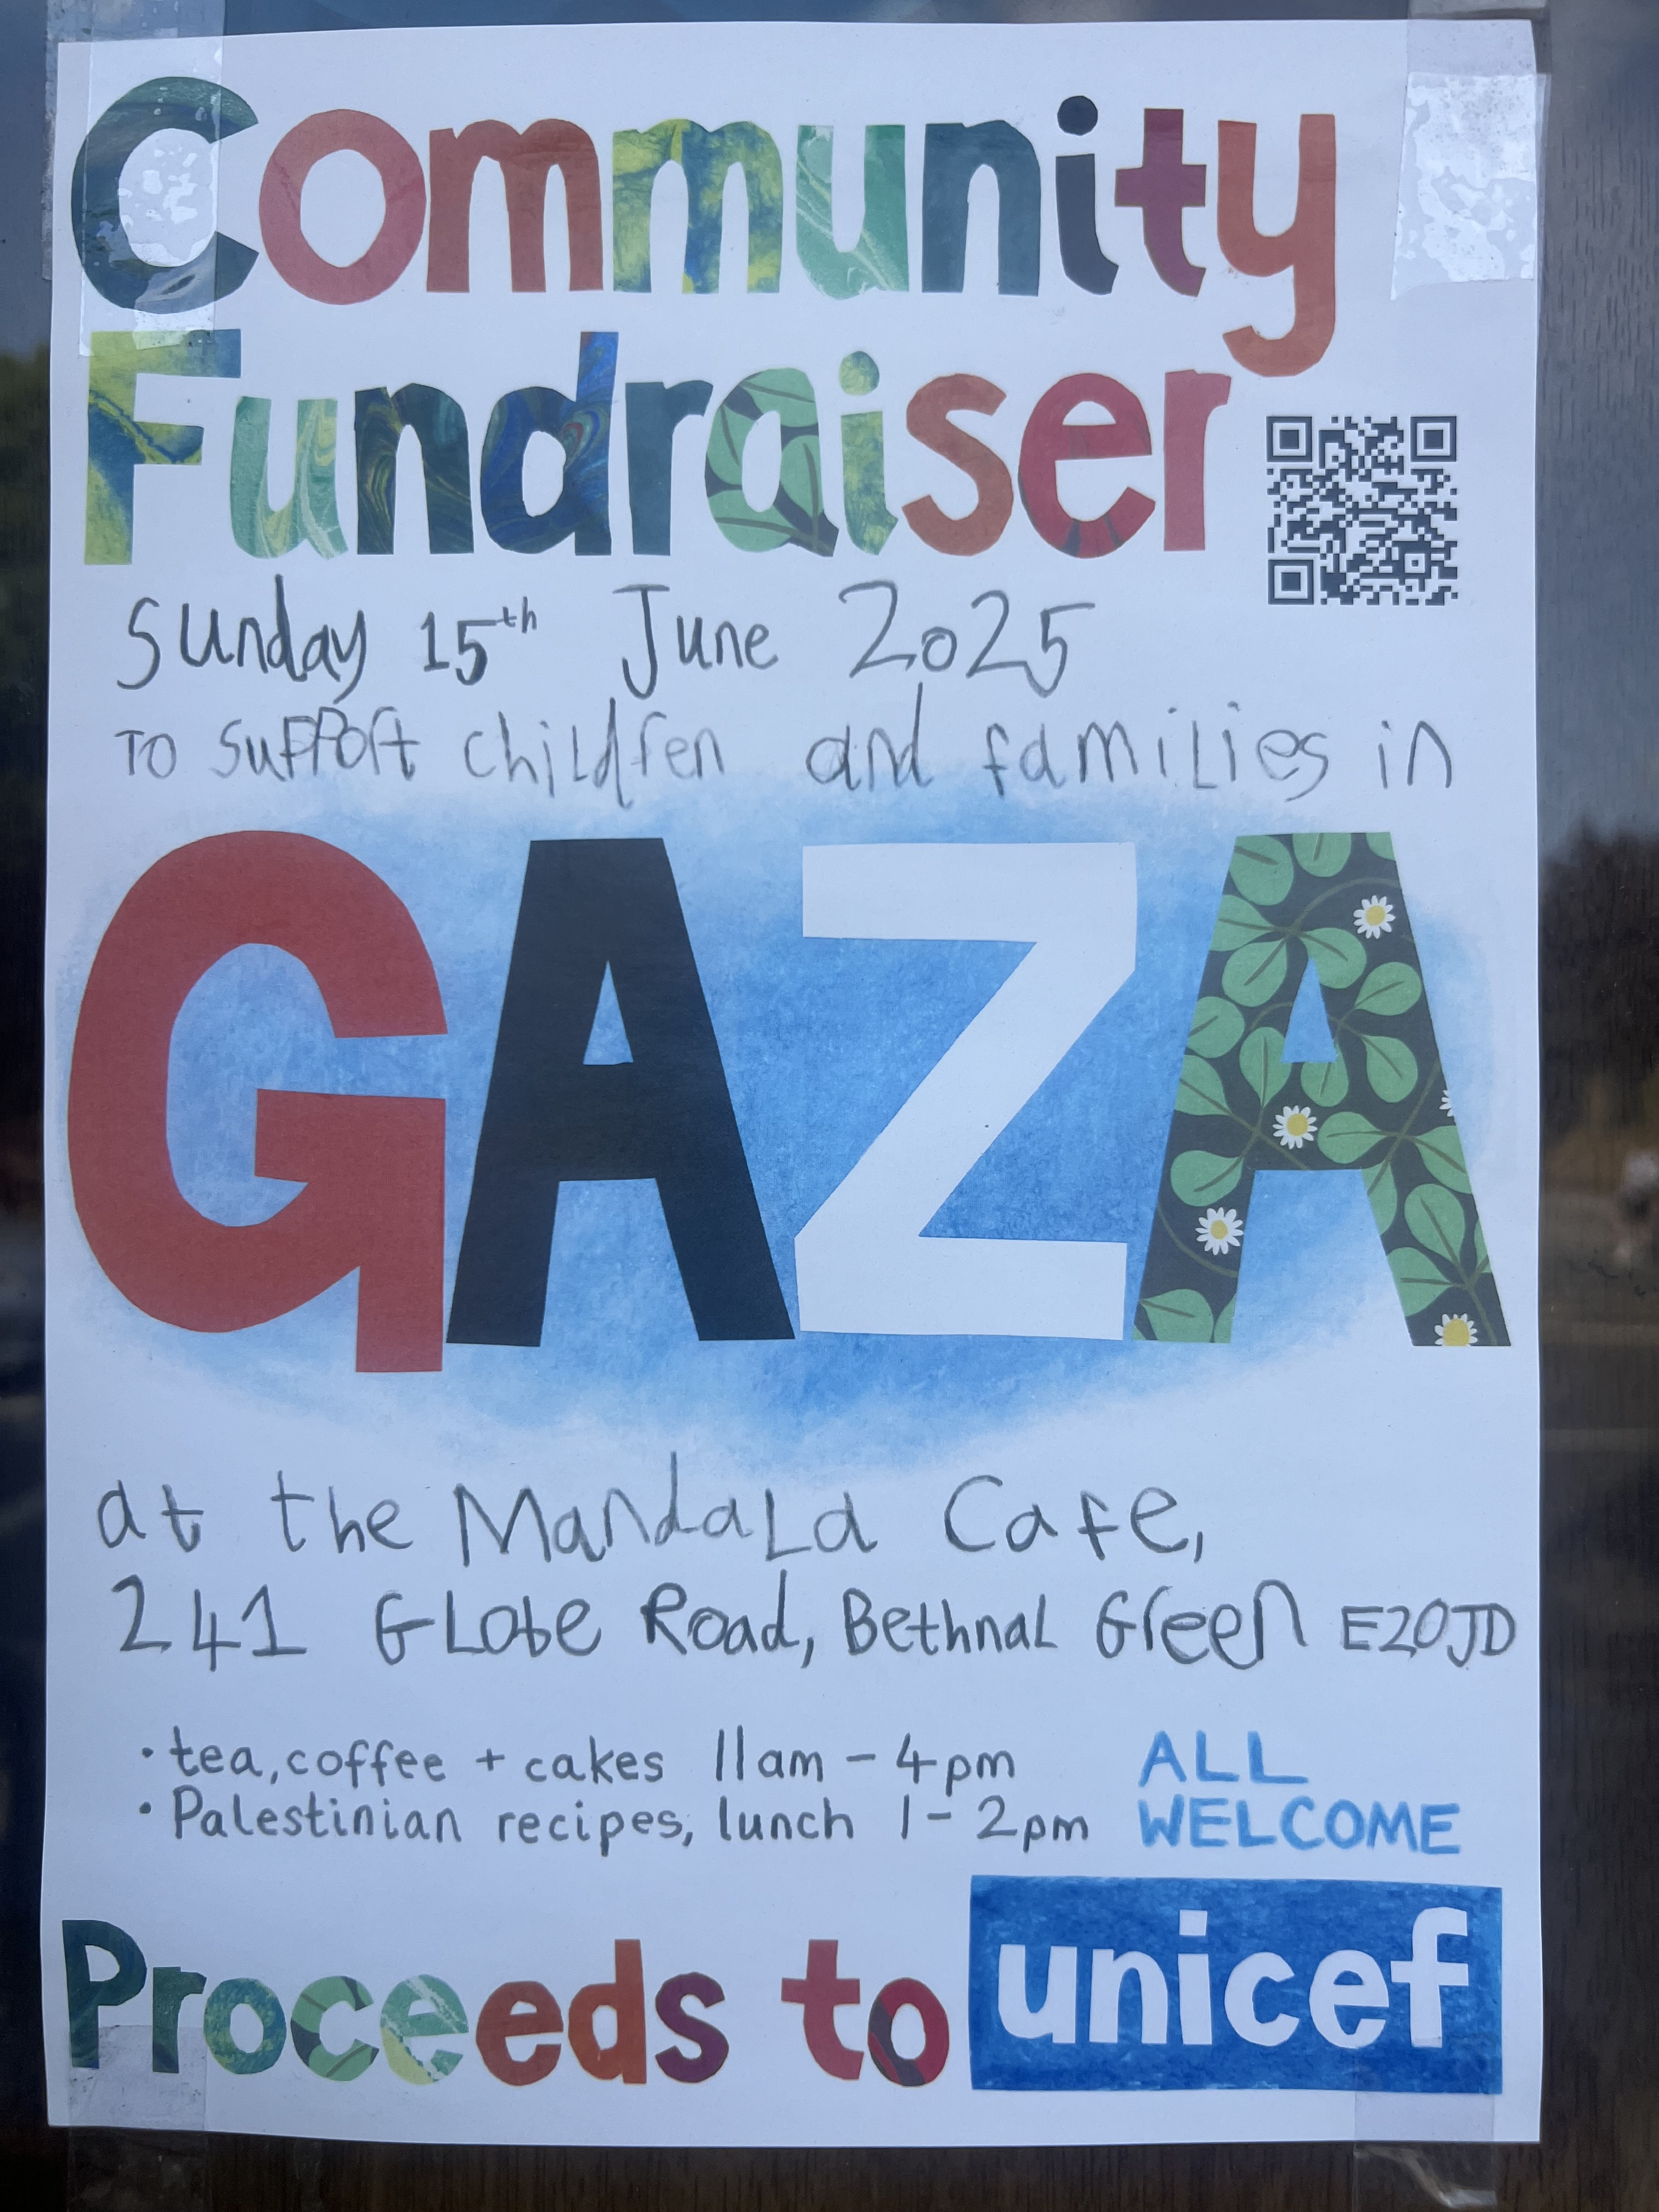 Community
Fundraiser
Sunday 15th June 2025
To support children and families in
GAZA
at the Mandala Cafe,
241 Globe Road, Bethnal Green E20JD
· tea, coffee + cakes 11am – 4pm
· Palestinian recipes, lunch 1 – 2pm
ALL
WELCOME
Proceeds to unicef